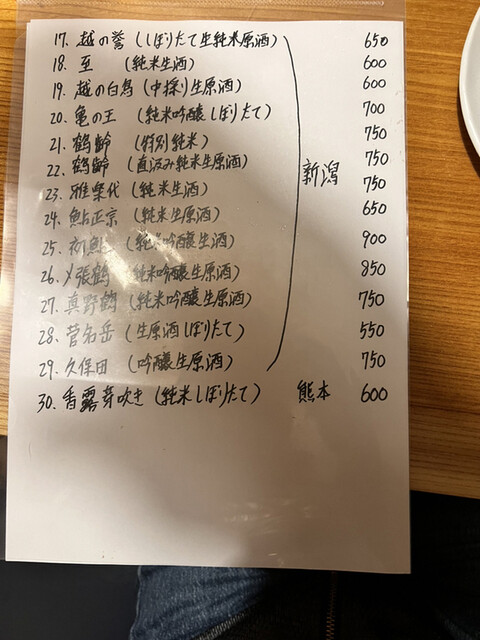 17. 越の誉 (しぼりたて生純米原酒) 650
18. 至 (純米生酒) 600
19. 越の白鳥 (中採り生原酒) 600
20. 亀の王 (純米吟醸しぼりたて) 700
21. 鶴齢 (特別純米) 750
22. 鶴齢 (直汲み純米生原酒) 新潟 750
23. 雅楽代 (純米生酒) 750
24. 鮎正宗 (純米生原酒) 650
25. 初鮎 (純米吟醸生原酒) 900
26. 〆張鶴 (純米吟醸生原酒) 850
27. 真野鶴 (純米吟醸生原酒) 750
28. 菅名岳 (生原酒しぼりたて) 550
29. 久保田 (吟醸生原酒) 750
30. 香露芽吹き (純米しぼりたて) 熊本 600